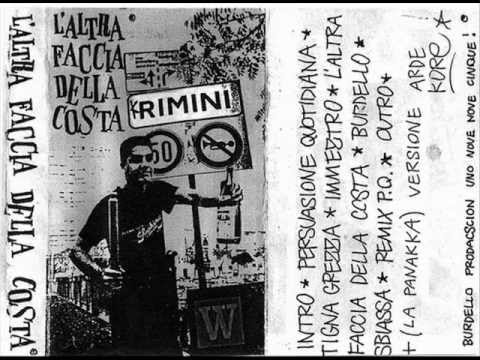 L'ALTRA FACCIA DELLA COSTA
L'ALTRA
FACCIA
DELLA
COSTA
RIMINI
50
W
INTRO * PERSUASIONE QUOTIDIANA *
TIGNA GREZZA * IMMIESTRO * L'ALTRA
FACCIA DELLA COSTA * BURDELLO *
SBIASSA * REMIX P.Q. * OUTRO *
+ (LA PANAKKA) VERSIONE ARDE
KORE *
BURDELLO PRODACSCION UNO NOVE NOVE CINQUE!